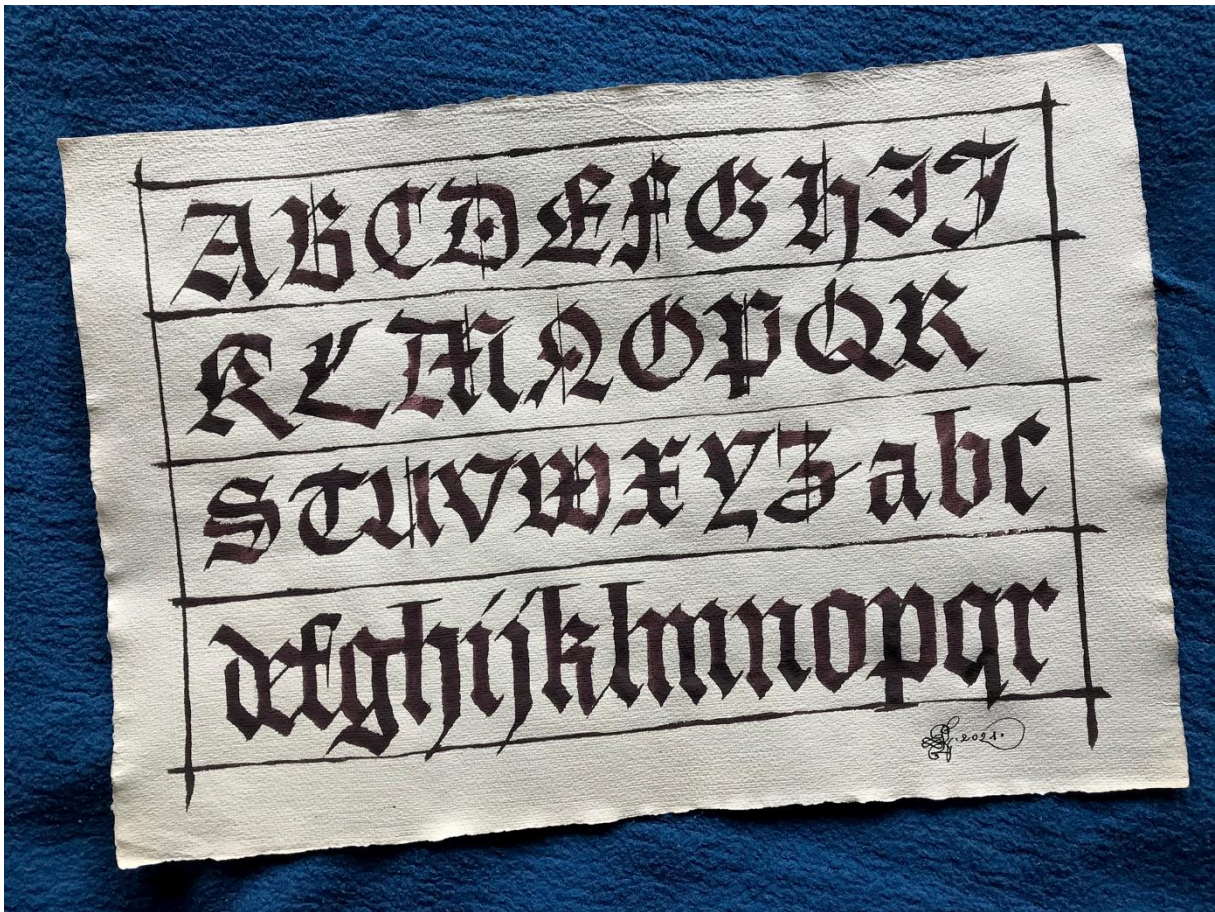 ABCDEFGHIJ
KLMNOPQR
STUVWXYZ abc
defghijklmnopqr
2021.